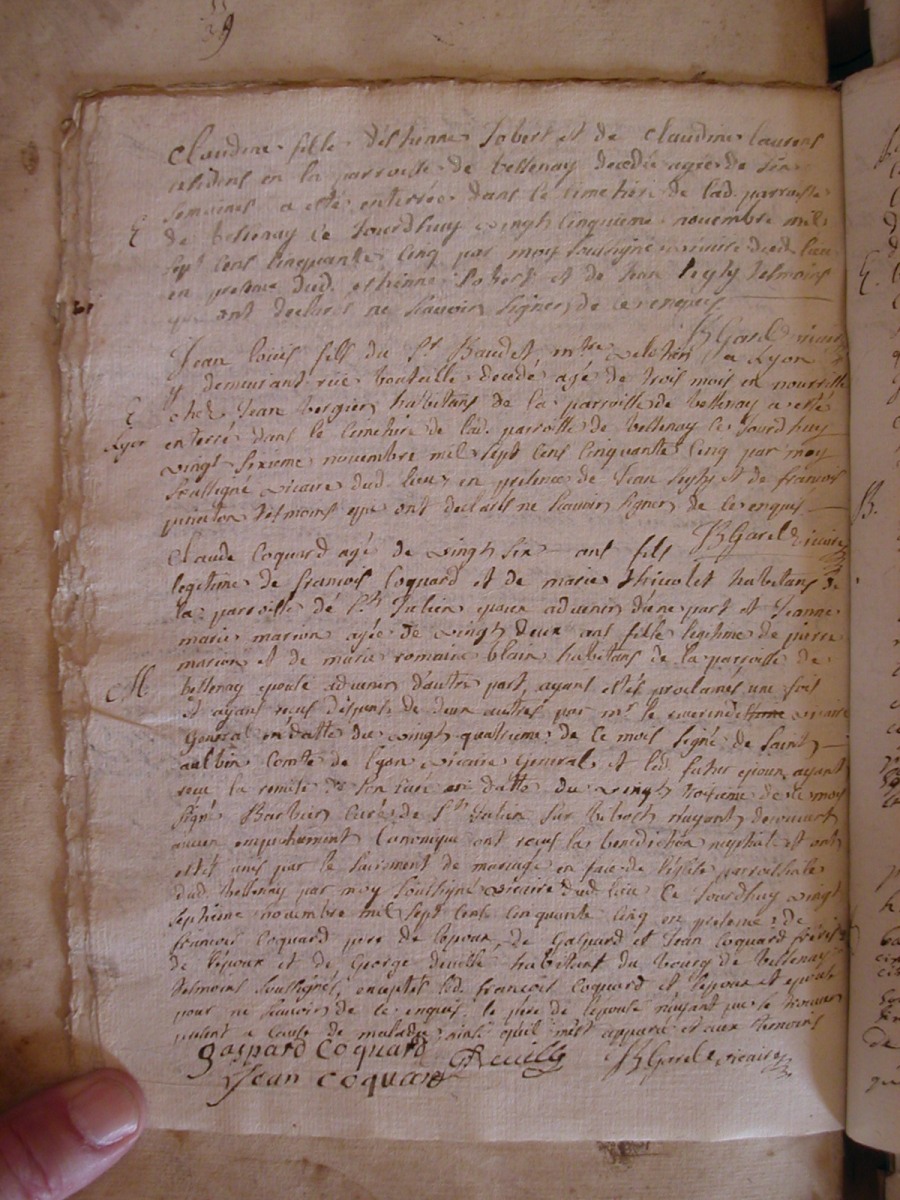 39
Claudine fille d'estienne Jobert et de claudine laurens
residens en la parroisse de bessenay decedée agée de six
semaines a esté enterrée dans le cimetiere de lad. parroisse
E
de bessenay ce jourdhuy vingt cinquieme novembre mil
sept cens cinquante cinq par moy soussigné vicaire dud. lieu
en presence dud. estienne Jobert et de Jean tesmoins
qui ont declarés ne scavoir signer de ce enquis
JB Garel vicaire
Jean louis fils du Sr Baudet mtre a Lyon
y demeurant rüe bouteille decedé agé de trois mois en nourrisse
E
Lyon
chez Jean bergier habitans de la parroisse de bessenay a esté
enterré dans le cimetiere de lad. parroisse de bessenay ce jourdhuy
vingt sixieme novembre mil sept cens cinquante cinq par moy
soussigné vicaire dud. lieu en presence de Jean et de francois
tesmoins que ont declarés ne scavoir signer de ce enquis
JB Garel vicaire
Claude Coquard agé de vingt six ans fils
legitime de francois Coquard et de marie thivolet habitans de
la parroisse de St Julien epoux advenir d'une part et Jeanne
marie marion agée de vingt deux ans fille legitime de pierre
marion et de marie romaine blain habitans de la parroisse de
M
bessenay epouse advenir d'autre part, ayant estés proclamés une fois
et ayant reçus dispense de deux autres par mr le vicaire
General en datte du vingt quatrieme de ce mois signé de Saint
aulbin Comte de Lyon vicaire General et led. futur epoux ayant
reçu la remise de son curé en datte du vingt troisieme de ce mois
signé Barbier curé de St Julien sur bibost n'ayant decouvert
aucun empechement Canonique ont reçus la benediction nuptiale et ont
estés unis par le sacrement de mariage en face de l'église parroissiale
dud. bessenay par moy soussigné vicaire dud. lieu ce jourdhuy vingt
septieme novembre mil sept cens cinquante cinq en presence de
francois Coquard pere de l'epoux, de Gaspard et Jean Coquard freres
de l'epoux et de George habitant du bourg de bessenay
tesmoins soussignés, exceptés led. francois Coquard et l'epoux et epouse
pour ne scavoir de ce enquis, le père de l'epouse n'ayant pu se trouver
présent a cause de maladie ainsi qu'il m'est apparu et aux temoins
gaspard Coquard JB Garel vicaire
Jean coquard